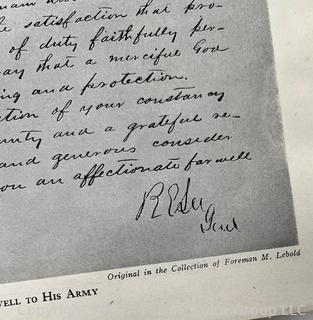 satisfaction that pro-
of duty faithfully per-
ay that a merciful God
ing and protection.
ction of your constancy
untry and a grateful re-
and generous consider
ou an affectionate farewell
R E Lee
Genl
Original in the Collection of Foreman M. Lebold
WELL TO HIS ARMY